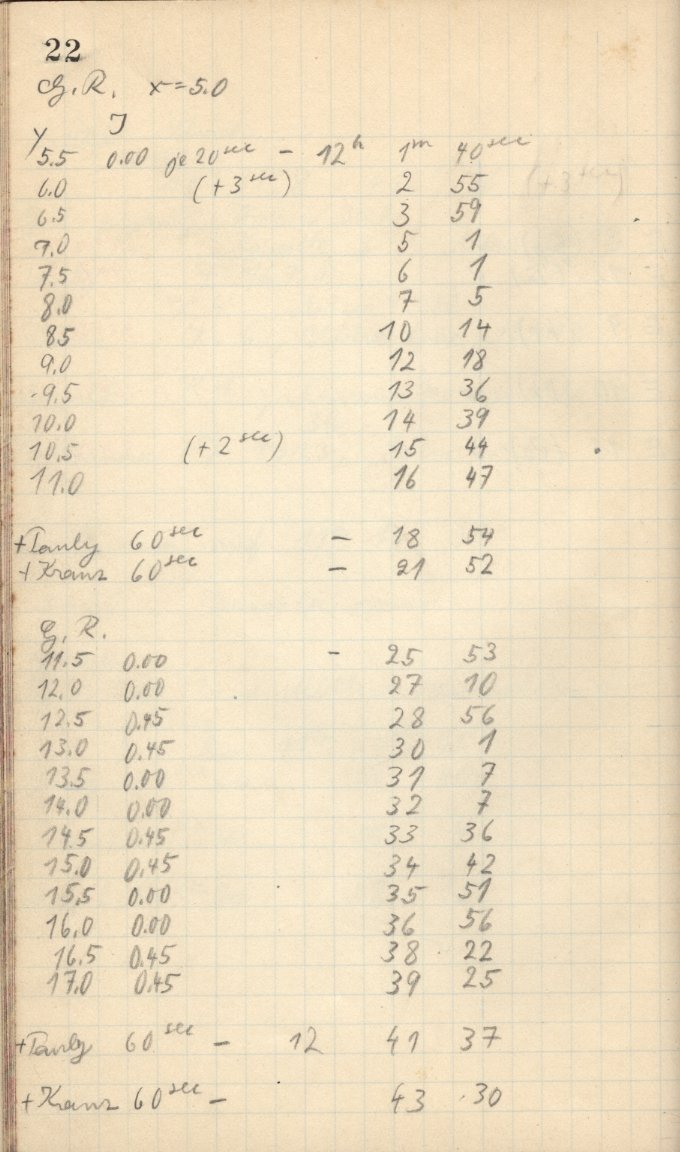 22
G. R. x=5.0
J
y
5.5 0.00 je 20 sec – 12h 1m 40 sec
6.0 (+3 sec) 2 55 (+3 sec)
6.5 3 59
7.0 5 1
7.5 6 1
8.0 7 5
85 10 14
9.0 12 18
9.5 13 36
10.0 14 39
10.5 (+2 sec) 15 44
11.0 16 47
+ 60 sec – 18 54
+Kranz 60 sec – 21 52
G. R.
11.5 0.00 – 25 53
12.0 0.00 27 10
12.5 0.45 28 56
13.0 0.45 30 1
13.5 0.00 31 7
14.0 0.00 32 7
14.5 0.45 33 36
15.0 0.45 34 42
15.5 0.00 35 51
16.0 0.00 36 56
16.5 0.45 38 22
17.0 0.45 39 25
+ 60 sec – 12 41 37
+Kranz 60 sec – 43 30